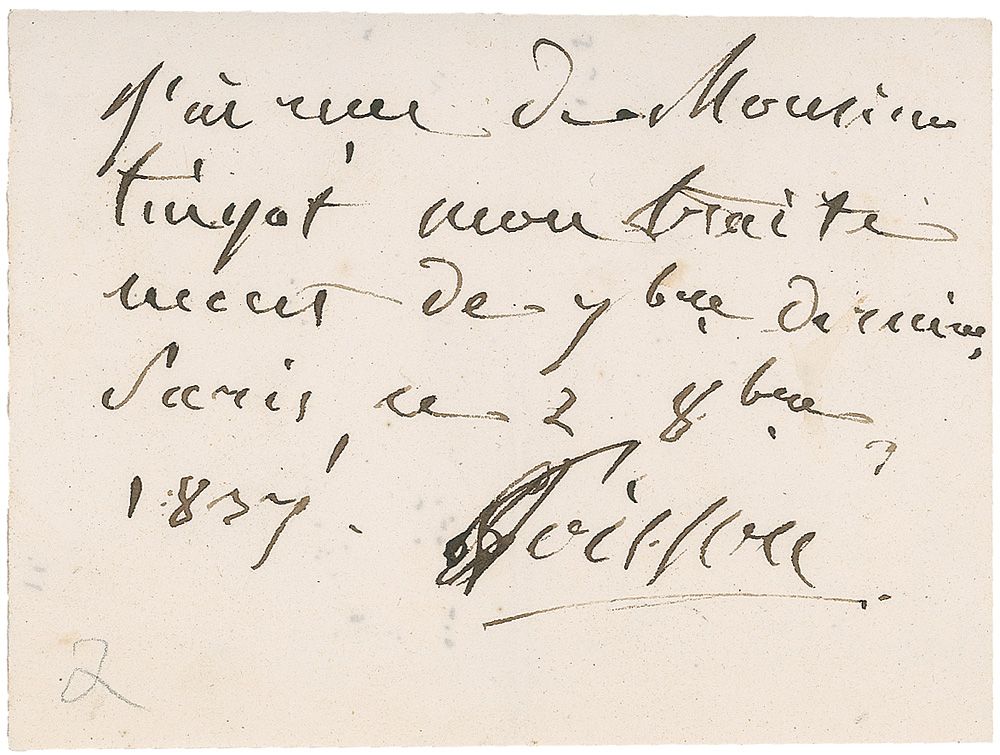 J'ai reçu de Monsieur
tingot mon traite
ment de 7bre dernier,
Paris, ce 2 8bre,
1837.
Poisson
2